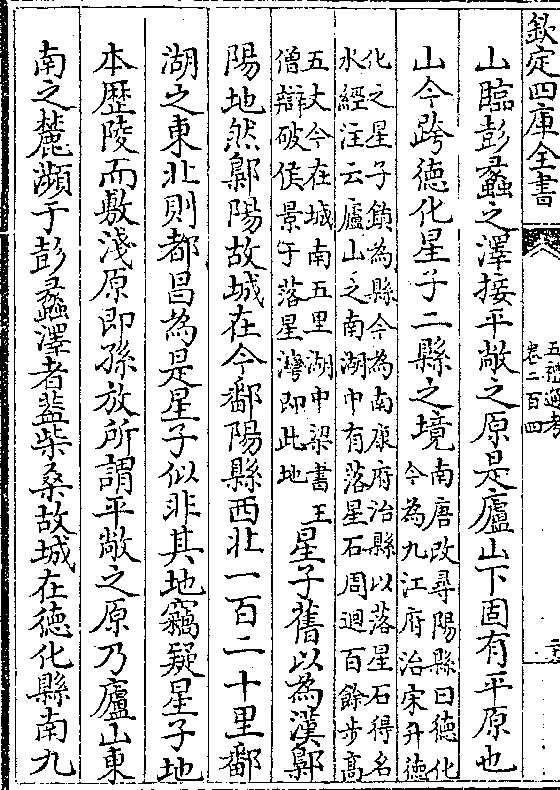 欽定四庫全書
五禮通考
卷二百四
山臨彭蠡之澤接平敞之原是廬山下固有平原也
山今跨德化星子二縣之境南唐改尋陽縣曰德化
今為九江府治宋升德
化之星子鎮為縣今為南康府治縣以落星石得名
水經注云廬山之南湖中有落星石周迴百餘步高
五丈今在城南五里湖中梁書王
僧辯破侯景于落星灣即此地
星子舊以為漢鄡
陽地然鄡陽故城在今鄱陽縣西北一百二十里鄱
湖之東北則都昌為是星子似非其地竊疑星子地
本歷陵而敷淺原即孫放所謂平敞之原乃廬山東
南之麓瀕于彭蠡澤者葢柴桑故城在德化縣南九